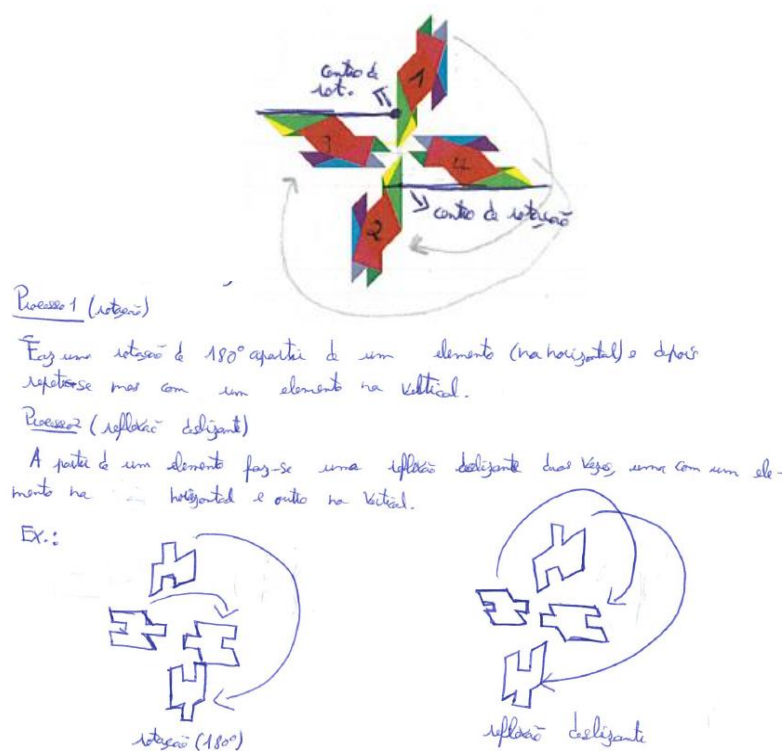 1
centro de
rot.
3
4
centro de rotação
2
Processo 1 (rotação)
Faz uma rotação de 180° apartir de um elemento (na horizontal) e depois
repete-se mas com um elemento na vertical.
Processo 2 (reflexão deslizante)
A partir de um elemento faz-se uma reflexão deslizante duas vezes, uma com um ele-
mento na horizontal e outro na vertical.
Ex.:
rotação (180°)
reflexão deslizante